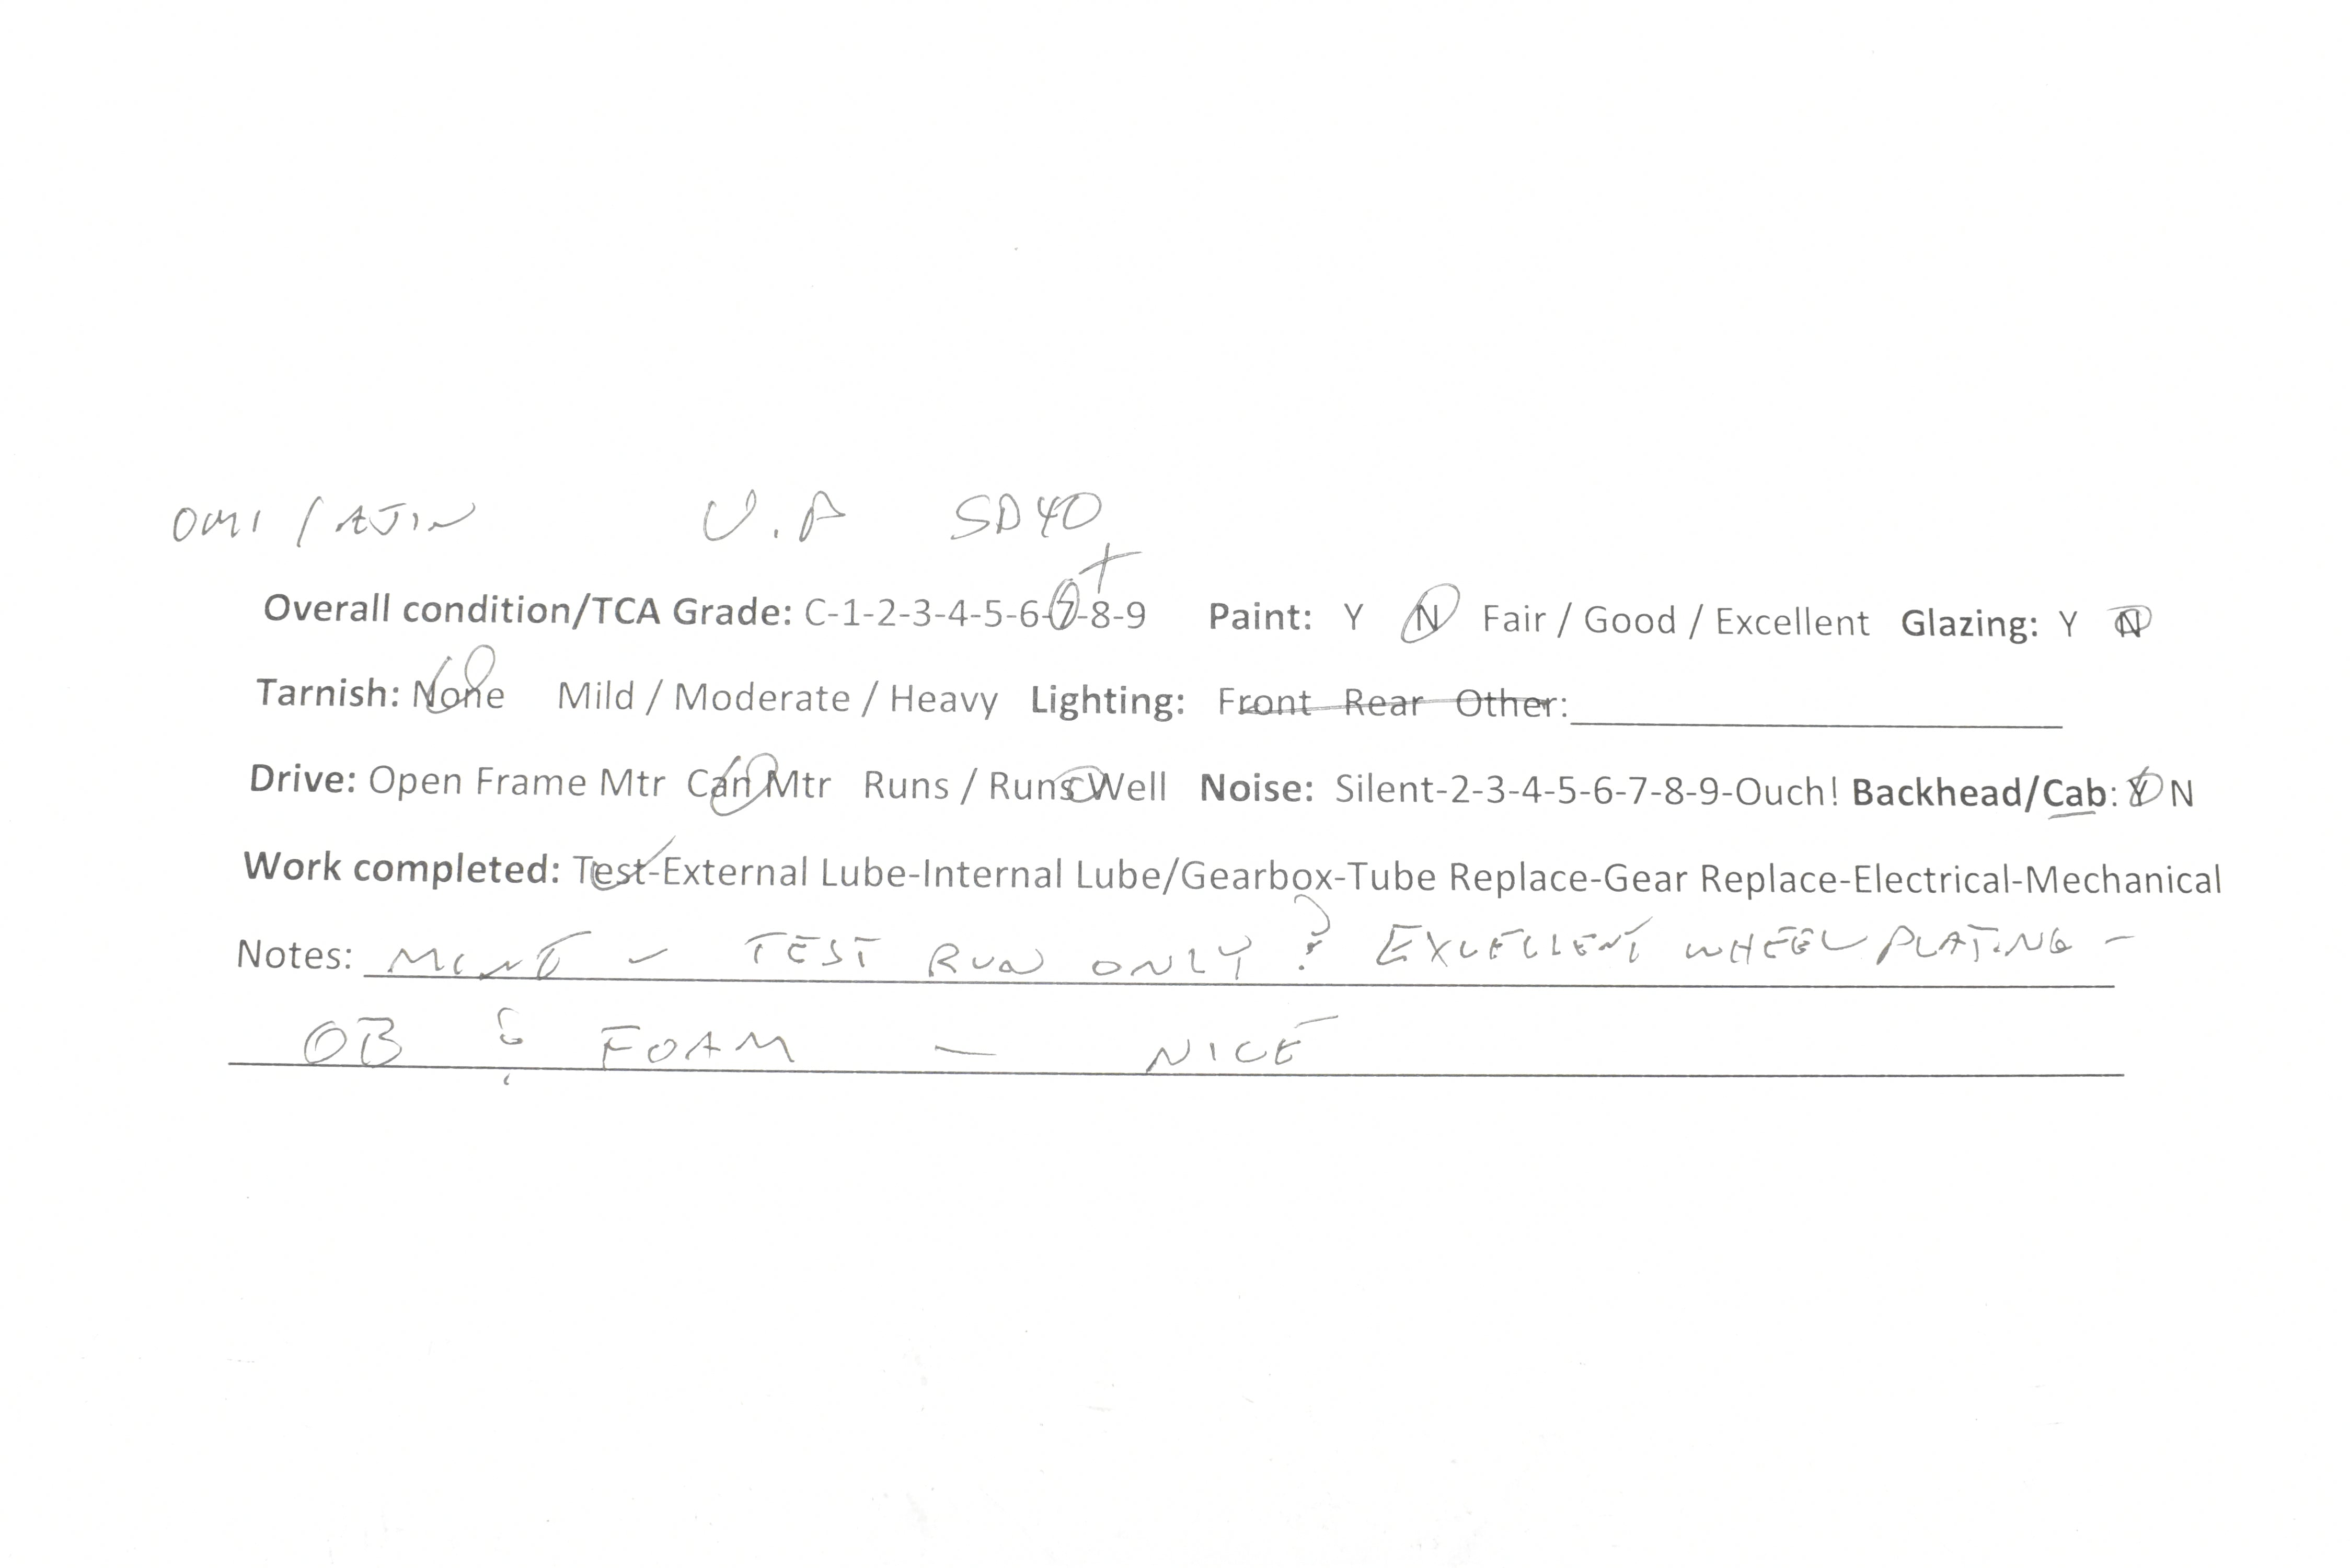 OMI / AJIN U.P SD40
+
Overall condition/TCA Grade: C-1-2-3-4-5-6-7-8-9 Paint: Y N Fair / Good / Excellent Glazing: Y N
Tarnish: None Mild / Moderate / Heavy Lighting: Front Rear Other:
Drive: Open Frame Mtr Can Mtr Runs / Runs Well Noise: Silent-2-3-4-5-6-7-8-9-Ouch! Backhead/Cab: Y N
Work completed: Test-External Lube-Internal Lube/Gearbox-Tube Replace-Gear Replace-Electrical-Mechanical
Notes: MINT – TEST RUN ONLY? EXCELLENT WHEEL PLATING –
OB & FOAM – NICE